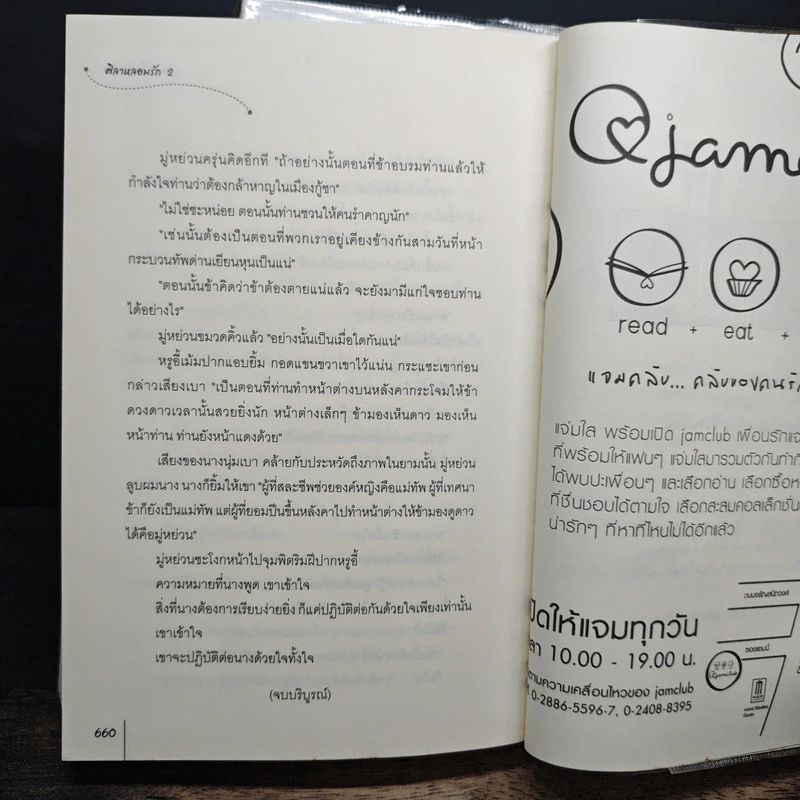 ศิลาหลอมรัก 2
มู่หย่วนครุ่นคิดอีกที "ถ้าอย่างนั้นตอนที่ข้าอบรมท่านแล้วให้
กำลังใจท่านว่าต้องกล้าหาญในเมืองกู้ซา"
"ไม่ใช่ซะหน่อย ตอนนั้นท่านชวนให้คนรำคาญนัก"
"เช่นนั้นต้องเป็นตอนที่พวกเราอยู่เคียงข้างกันสามวันที่หน้า
กระบวนทัพด่านเยียนหุนเป็นแน่"
"ตอนนั้นข้าคิดว่าข้าต้องตายแน่แล้ว จะยังมามีแก่ใจชอบท่าน
ได้อย่างไร"
มู่หย่วนขมวดคิ้วแล้ว "อย่างนั้นเป็นเมื่อใดกันแน่"
หรูอี้เม้มปากแอบยิ้ม กอดแขนขวาเขาไว้แน่น กระแซะเขาก่อน
กล่าวเสียงเบา "เป็นตอนที่ท่านทำหน้าต่างบนหลังคากระโจมให้ข้า
ดวงดาวเวลานั้นสวยยิ่งนัก หน้าต่างเล็กๆ ข้ามองเห็นดาว มองเห็น
หน้าท่าน ท่านยังหน้าแดงด้วย"
เสียงของนางนุ่มเบา คล้ายกับประหวัดถึงภาพในยามนั้น มู่หย่วน
ลูบผมนาง นางก็ยิ้มให้เขา "ผู้ที่สละชีพช่วยองค์หญิงคือแม่ทัพ ผู้ที่เทศนา
ข้าก็ยังเป็นแม่ทัพ แต่ผู้ที่ยอมปีนขึ้นหลังคาไปทำหน้าต่างให้ข้ามองดูดาว
ได้คือมู่หย่วน"
มู่หย่วนชะโงกหน้าไปจุมพิตริมฝีปากหรูอี้
ความหมายที่นางพูด เขาเข้าใจ
สิ่งที่นางต้องการเรียบง่ายยิ่ง ก็แค่ปฏิบัติต่อกันด้วยใจเพียงเท่านั้น
เขาเข้าใจ
เขาจะปฏิบัติต่อนางด้วยใจทั้งใจ
(จบบริบูรณ์)
660
jam
read + eat +
แจมคลับ... คลับของคนรัก
แจ่มใส พร้อมเปิด jamclub เพื่อนรักแจ
ที่พร้อมให้แฟนๆ แจ่มใสมารวมตัวกันทำกิ
ได้พบปะเพื่อนๆ และเลือกอ่าน เลือกซื้อห
ที่ชื่นชอบได้ตามใจ เลือกสะสมคอลเล็กชั่น
น่ารักๆ ที่หาที่ไหนไม่ได้อีกแล้ว
ปิดให้แจมทุกวัน
ลา 10.00 - 19.00 น.
ตามความเคลื่อนไหวของ jamclub
0-2886-5596-7, 0-2408-8395
ถนนจรัญสนิทวงศ์
jamclub